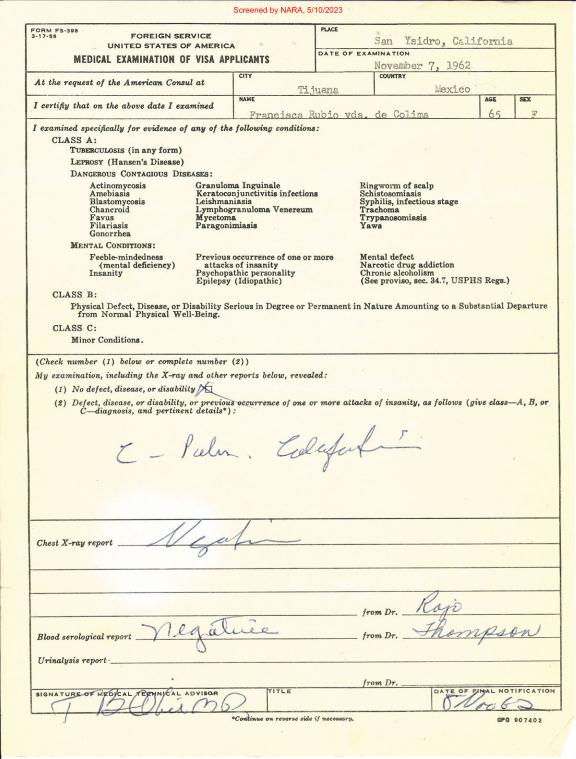 Screened by NARA, 5/10/2023
FORM FS-398
3-17-58
FOREIGN SERVICE
UNITED STATES OF AMERICA
MEDICAL EXAMINATION OF VISA APPLICANTS
PLACE
San Ysidro, California
DATE OF EXAMINATION
November 7, 1962
At the request of the American Consul at
CITY
Tijuana
COUNTRY
Mexico
I certify that on the above date I examined
NAME
Francisca Rubio vda. de Colima
AGE
65
SEX
F
I examined specifically for evidence of any of the following conditions:
CLASS A:
TUBERCULOSIS (in any form)
LEPROSY (Hansen's Disease)
DANGEROUS CONTAGIOUS DISEASES:
Actinomycosis
Amebiasis
Blastomycosis
Chancroid
Favus
Filariasis
Gonorrhea
Granuloma Inguinale
Keratoconjunctivitis infections
Leishmaniasis
Lymphogranuloma Venereum
Mycetoma
Paragonimiasis
Ringworm of scalp
Schistosomiasis
Syphilis, infectious stage
Trachoma
Trypanosomiasis
Yaws
MENTAL CONDITIONS:
Feeble-mindedness
(mental deficiency)
Insanity
Previous occurrence of one or more
attacks of insanity
Psychopathic personality
Epilepsy (Idiopathic)
Mental defect
Narcotic drug addiction
Chronic alcoholism
(See proviso, sec. 34.7, USPHS Regs.)
CLASS B:
Physical Defect, Disease, or Disability Serious in Degree or Permanent in Nature Amounting to a Substantial Departure
from Normal Physical Well-Being.
CLASS C:
Minor Conditions.
(Check number (1) below or complete number (2))
My examination, including the X-ray and other reports below, revealed:
(1) No defect, disease, or disability
(2) Defect, disease, or disability, or previous occurrence of one or more attacks of insanity, as follows (give class—A, B, or
C—diagnosis, and pertinent details*):
C -
Chest X-ray report Negative
from Dr. Rojo
Blood serological report Negative from Dr. Thompson
Urinalysis report
from Dr.
SIGNATURE OF MEDICAL TECHNICAL ADVISOR
TITLE
DATE OF FINAL NOTIFICATION
*Continue on reverse side if necessary.
GPO 907402